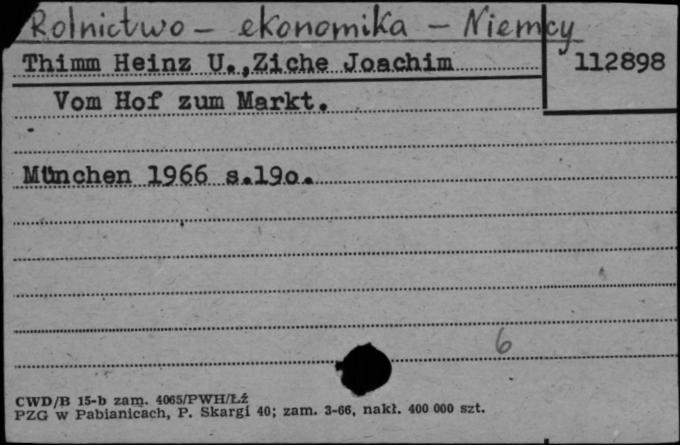 Rolnictwo - ekonomika - Niemcy
Thimm Heinz U., Ziche Joachim
112898
Vom Hof zum Markt.
München 1966 s.19o.
6
CWD/B 15-b zam. 4065/PWH/Łź
PZG w Pabianicach, P. Skargi 40; zam. 3-66, nakł. 400 000 szt.